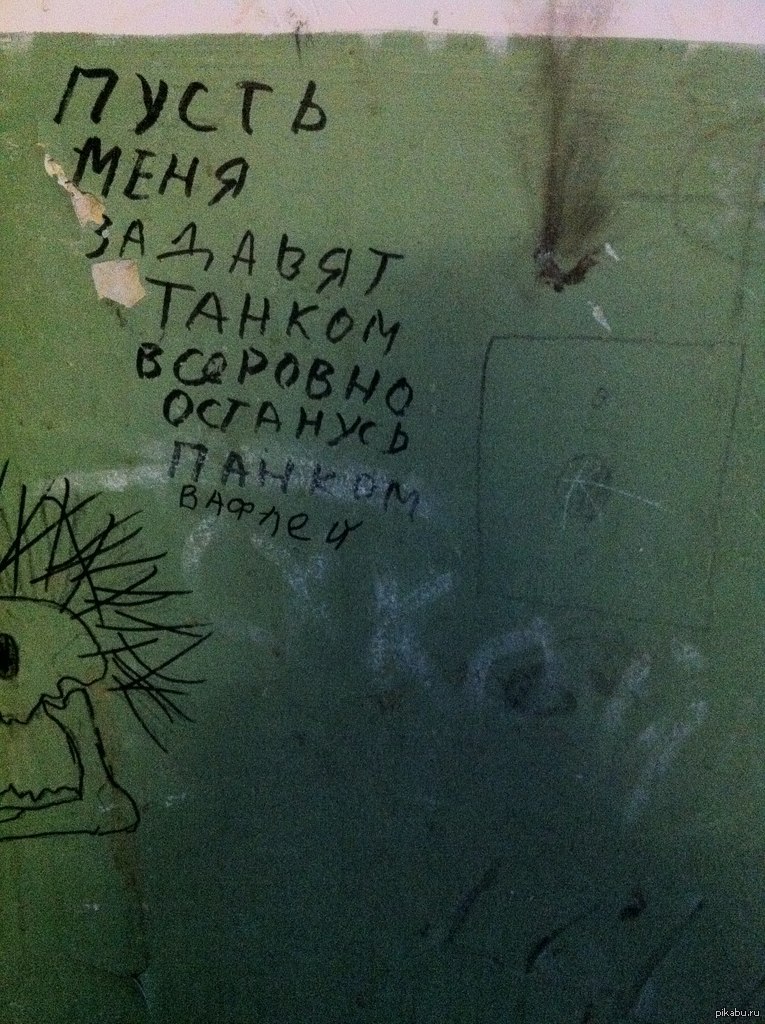 ПУСТЬ
МЕНЯ
ЗАДАВЯТ
ТАНКОМ
ВСЕРОВНО
ОСТАНУСЬ
ПАНКОМ
ВАФЛЕЙ
pikabu.ru